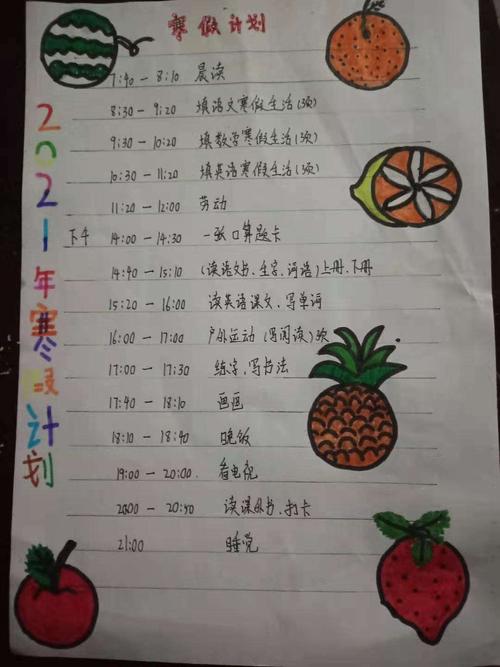 寒假计划
2021年寒假计划
7:40 — 8:10 晨读
8:30 — 9:20 填语文寒假生活(1页)
9:30 — 10:20 填数学寒假生活(1页)
10:30 — 11:20 填英语寒假生活(1页)
11:20 — 12:00 劳动
下午 14:00 — 14:30 一张口算题卡
14:40 — 15:10 (读语文书、生字、词语)上册、下册
15:20 — 16:00 读英语课文、写单词
16:00 — 17:00 户外运动(写阅读)1页
17:00 — 17:30 练字、写书法
17:40 — 18:10 画画
18:10 — 18:40 晚饭
19:00 — 20:00 看电视
2000 — 20:40 读课外书、打卡
21:00 睡觉